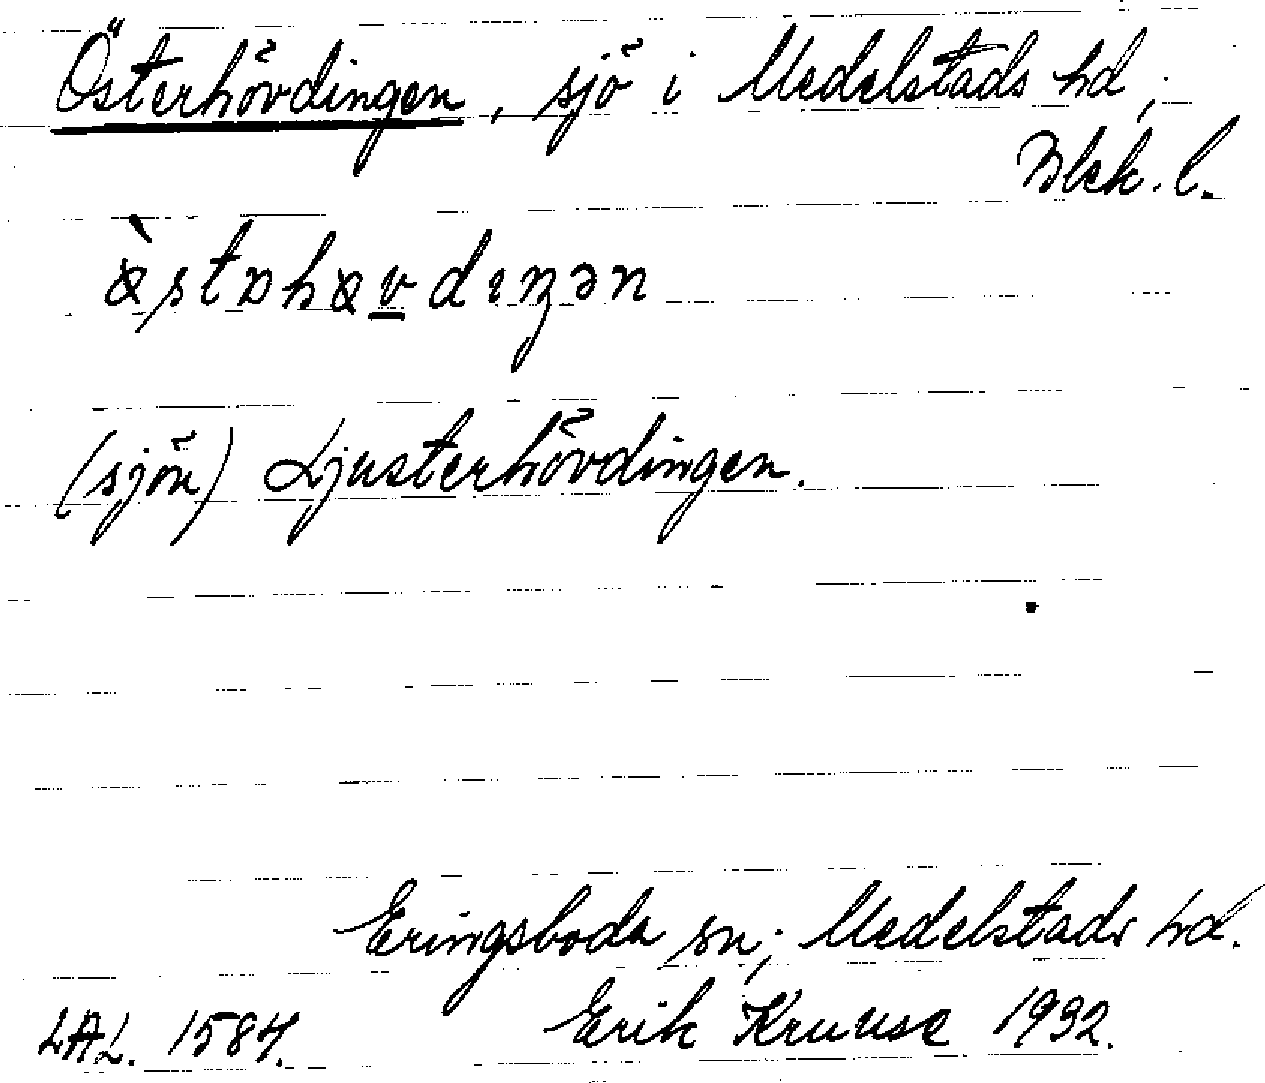 Österhövdingen, sjö i Medelstads hd;
Blek. l.
(sjön) Ljusterhövdingen.
Eringsboda sn; Medelstads hd.
LAL. 1584. Erik Kruuse 1932.